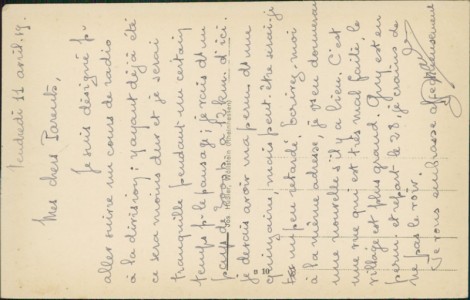 Vendredi 11 avril. 19.
Mes chers Parents,
Je suis désigné pr
aller suivre un cours de radio
à la division; y ayant déjà été
ce sera moins dur et je serai
tranquille pendant un certain
temps pr le pansage; je vais dt un
à 12 km. d'ici.
je devais avoir ma perm. dt une
quinzaine, mais peut-être serai-je
un peu retardé. Ecrivez-moi
à la même adresse, je v's en donnerai
une nouvelle s'il y a lieu. C'est
une rue qui est très mal faite le
village est plus grand. Guy est en
perm. et repart le 22, je crains de
ne pas le voir.
Je vous embrasse affectueusement